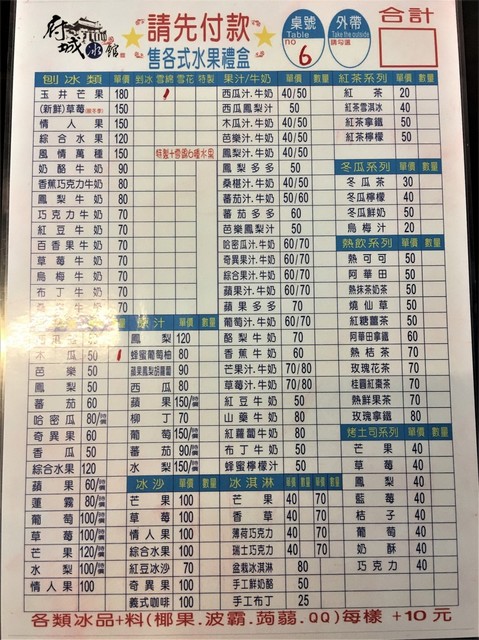 府城冰館
請先付款
售各式水果禮盒
桌號
Table
no 6
外帶
Take the outside
請勾選
合計
刨冰類 單價 剉冰 雪綿 雪花 特製
玉井芒果 180
(新鮮)草莓 150
情人果 100
綜合水果 120
風情萬種 150 特製+雪綿6種水果
奶酪牛奶 90
香蕉巧克力牛奶 80
鳳梨牛奶 80
巧克力牛奶 70
紅豆牛奶 70
百香果牛奶 70
草莓牛奶 70
烏梅牛奶 70
布丁牛奶 70
木瓜 50
芭樂 50
鳳梨 50
蕃茄 60
哈密瓜 80/時價
奇異果 60
香瓜 50
綜合水果 120
蘋果 60/時價
蓮霧 80/時價
葡萄 100/時價
草莓 100/時價
芒果 120/時價
水梨 100/時價
情人果 100
原汁 單價 數量
鳳梨 120
蜂蜜葡萄柚 80
蘋果鳳梨胡蘿蔔 90
西瓜 80
蘋果 150/時價
柳丁 70
葡萄 150/時價
蕃茄 90/時價
水梨 150/時價
冰沙 單價 數量
芒果 100
草莓 100
情人果 100
綜合水果 100
紅豆冰沙 70
奇異果 100
義式咖啡 100
果汁/牛奶 單價 數量
西瓜汁.牛奶 40/50
西瓜鳳梨汁 50
木瓜汁.牛奶 40/50
芭樂汁.牛奶 40/50
鳳梨汁.牛奶 40/50
鳳梨多多 50
桑椹汁.牛奶 40/50
蕃茄汁.牛奶 50/60
蕃茄多多 60
芭樂鳳梨汁 50
哈密瓜汁.牛奶 60/70
奇異果汁.牛奶 60/70
綜合果汁.牛奶 60/70
蘋果汁.牛奶 60/70
蘋果多多 70
葡萄汁.牛奶 60/70
酪梨牛奶 70
香蕉牛奶 60
芒果汁.牛奶 70/80
草莓汁.牛奶 70/80
紅豆牛奶 50
山藥牛奶 80
紅蘿蔔牛奶 80
布丁牛奶 50
蜂蜜檸檬汁 50
冰淇淋 單價 數量 單價 數量
芒果 40 70
香草 40 70
薄荷巧克力 40 70
瑞士巧克力 40 70
盆栽冰淇淋 80
手工鮮奶酪 50
手工布丁 25
紅茶系列 單價 數量
紅茶 20
紅茶雪淇冰 40
紅茶拿鐵 50
紅茶檸檬 50
冬瓜系列 單價 數量
冬瓜茶 30
冬瓜檸檬 40
冬瓜鮮奶 50
烏梅汁 20
熱飲系列 單價 數量
熱可可 50
阿華田 50
熱抹茶奶茶 50
燒仙草 50
紅糖薑茶 50
阿華田拿鐵 60
熱桔茶 70
玫瑰花茶 70
桂圓紅棗茶 70
熱鮮果茶 70
玫瑰拿鐵 80
烤土司系列 單價 數量
芒果 40
草莓 40
鳳梨 40
藍莓 40
桔子 40
葡萄 40
奶酥 40
巧克力 40
各類冰品+料(椰果.波霸.蒟蒻.QQ)每樣 +10 元